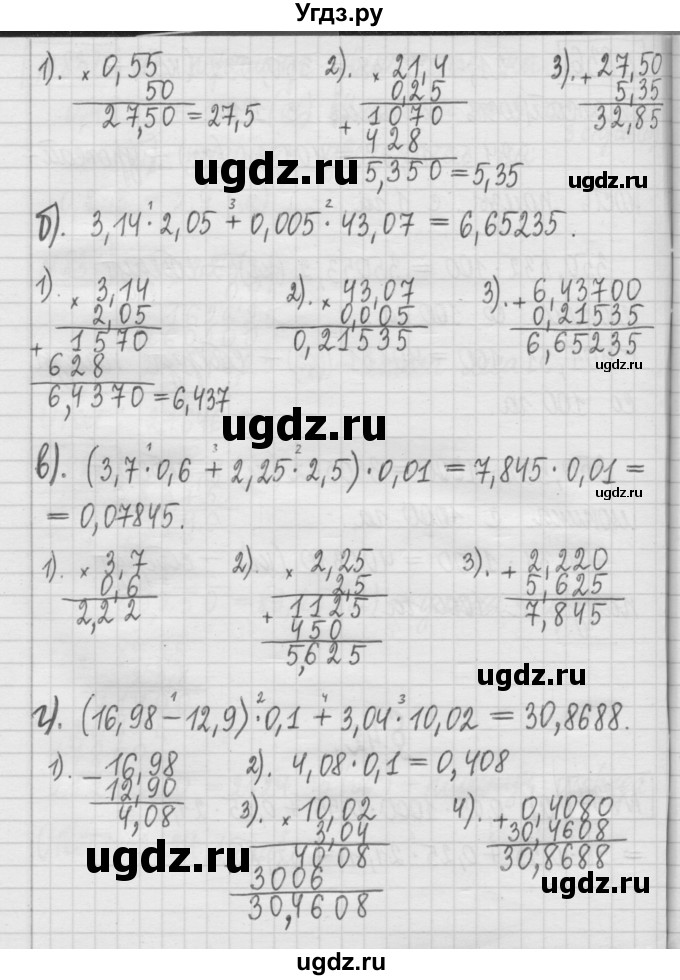 Угдз.ру
1). × 0,55 2). × 21,4 3). + 27,50
50 0,25 5,35
27,50 = 27,5 + 1070 32,85
428
5,350 = 5,35
ugdz.ru ugdz.ru
ugdz.ru
б). 3,14 · 2,05 + 0,005 · 43,07 = 6,65235.
1 3 2
1). × 3,14 2). × 43,07 3). + 6,43700
2,05 0,005 0,21535
+ 1570 0,21535 6,65235
628 ugdz.ru
6,4370 = 6,437
ugdz.ru
в). (3,7 · 0,6 + 2,25 · 2,5) · 0,01 = 7,845 · 0,01 =
1 3 2
ugdz.ru
= 0,07845.
1). × 3,7 2). × 2,25 3). + 2,220
0,6 2,5 5,625
2,22 + 1125 7,845
450
5,625
ugdz.ru
ugdz.ru
г). (16,98 − 12,9) · 0,1 + 3,04 · 10,02 = 30,8688.
1 2 4 3
1). − 16,98 2). 4,08 · 0,1 = 0,408
12,90 3). × 10,02 4). + 0,4080
4,08 3,04 30,4608
4008 30,8688
3006
30,4608
ugdz.ru
ugdz.ru
ugdz.ru